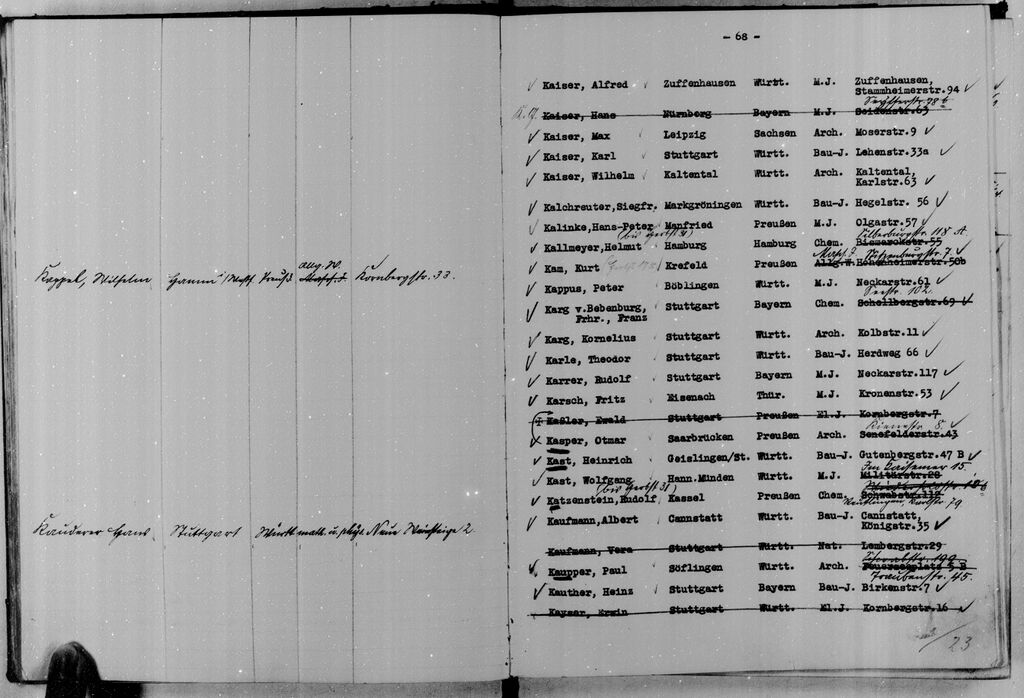 Kappel, Wilhelm Hamm Preuß. Allg. W. Masch.J. Kornbergstr. 33.
Kauderer Hans Stuttgart Württ. math. u. phys. Neue Weinsteige 2
- 68 -
Kaiser, Alfred Zuffenhausen Württ. M.J. Zuffenhausen,
Stammheimerstr.94
Kaiser, Hans Nürnberg Bayern M.J. Seidenstr.63
Kaiser, Max Leipzig Sachsen Arch. Moserstr.9
Kaiser, Karl Stuttgart Württ. Bau-J. Lehenstr.33a
Kaiser, Wilhelm Kaltental Württ. Arch. Kaltental,
Karlstr.63
Kalchreuter,Siegfr. Markgröningen Württ. Bau-J. Hegelstr. 56
Kalinke,Hans-Peter Manfried Preußen M.J. Olgastr.57
(bis Herbst 31) Silberburgstr. 118 A
Kallmeyer,Helmut Hamburg Hamburg Chem. Bismarckstr.55
Masch. J.
Kam, Kurt Krefeld Preußen Allg.W. Hohenheimerstr.50b
Kappus, Peter Böblingen Württ. M.J. Neckarstr.61
Seestr. 102
Karg v.Bebenburg, Stuttgart Bayern Chem. Schellbergstr.69
Frhr., Franz
Karg, Kornelius Stuttgart Württ. Arch. Kolbstr.11
Karle, Theodor Stuttgart Württ. Bau-J. Herdweg 66
Karrer, Rudolf Stuttgart Bayern M.J. Neckarstr.117
Karsch, Fritz Eisenach Thür. M.J. Kronenstr.53
Kaßler, Ewald Stuttgart Preußen El.J. Kornbergstr.7
Kienestr. 8.
Kasper, Otmar Saarbrücken Preußen Arch. Senefelderstr.43
Kast, Heinrich Geislingen/St. Württ. Bau-J. Gutenbergstr.47 B
Im Kaisemer 15
Kast, Wolfgang Hann.Minden Württ. M.J. Militärstr.28
(bis Herbst 31)
Katzenstein,Rudolf Kassel Preußen Chem. Schwabstr.119
Reutlingen, Karlstr. 79
Kaufmann,Albert Cannstatt Württ. Bau-J. Cannstatt,
Königstr.35
Kaufmann, Vera Stuttgart Württ. Nat. Lembergstr.29
Schwabstr. 199
Kaupper, Paul Söflingen Württ. Arch. Feuerseeplatz 5 B
Traubenstr. 45.
Kauther, Heinz Stuttgart Bayern Bau-J. Birkenstr.7
Kayser, Erwin Stuttgart Württ. El.J. Kornbergstr.16
23